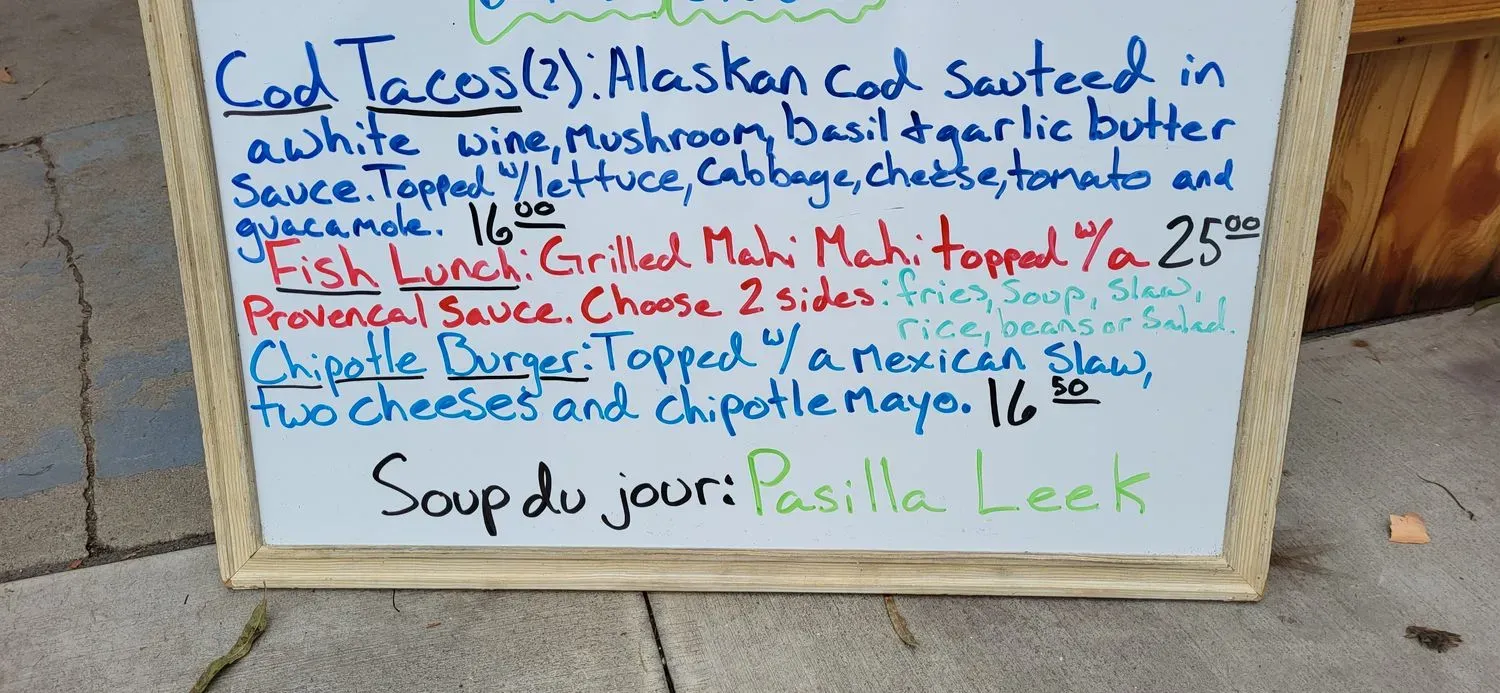 Cod Tacos(2): Alaskan Cod Sauteed in
a white wine, Mushroom, basil & garlic butter
Sauce. Topped w/lettuce, Cabbage, cheese, tomato and
guacamole. 16 00
Fish Lunch: Grilled Mahi Mahi topped w/a 25 00
Provencal Sauce. Choose 2 sides: fries, Soup, Slaw,
rice, beans or Salad.
Chipotle Burger: Topped w/ a Mexican Slaw,
two cheeses and chipotle Mayo. 16 50
Soup du jour: Pasilla Leek